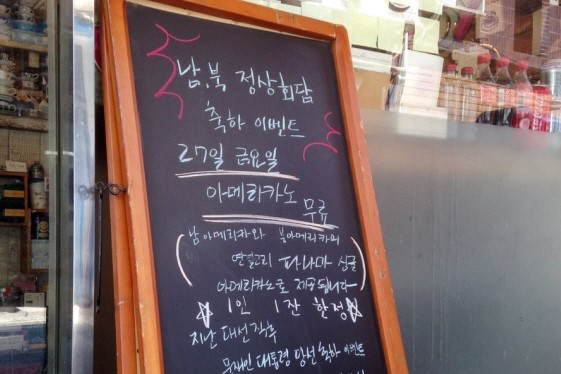 남.북 정상회담
축하 이벤트
27일 금요일
아메리카노 무료
남아메리카와 북아메리카의
연결고리 파나마 싱글
아메리카노로 제공됩니다
☆1인 1잔 한정☆
지난 대선 직후
문재인 대통령 당선 축하 이벤트